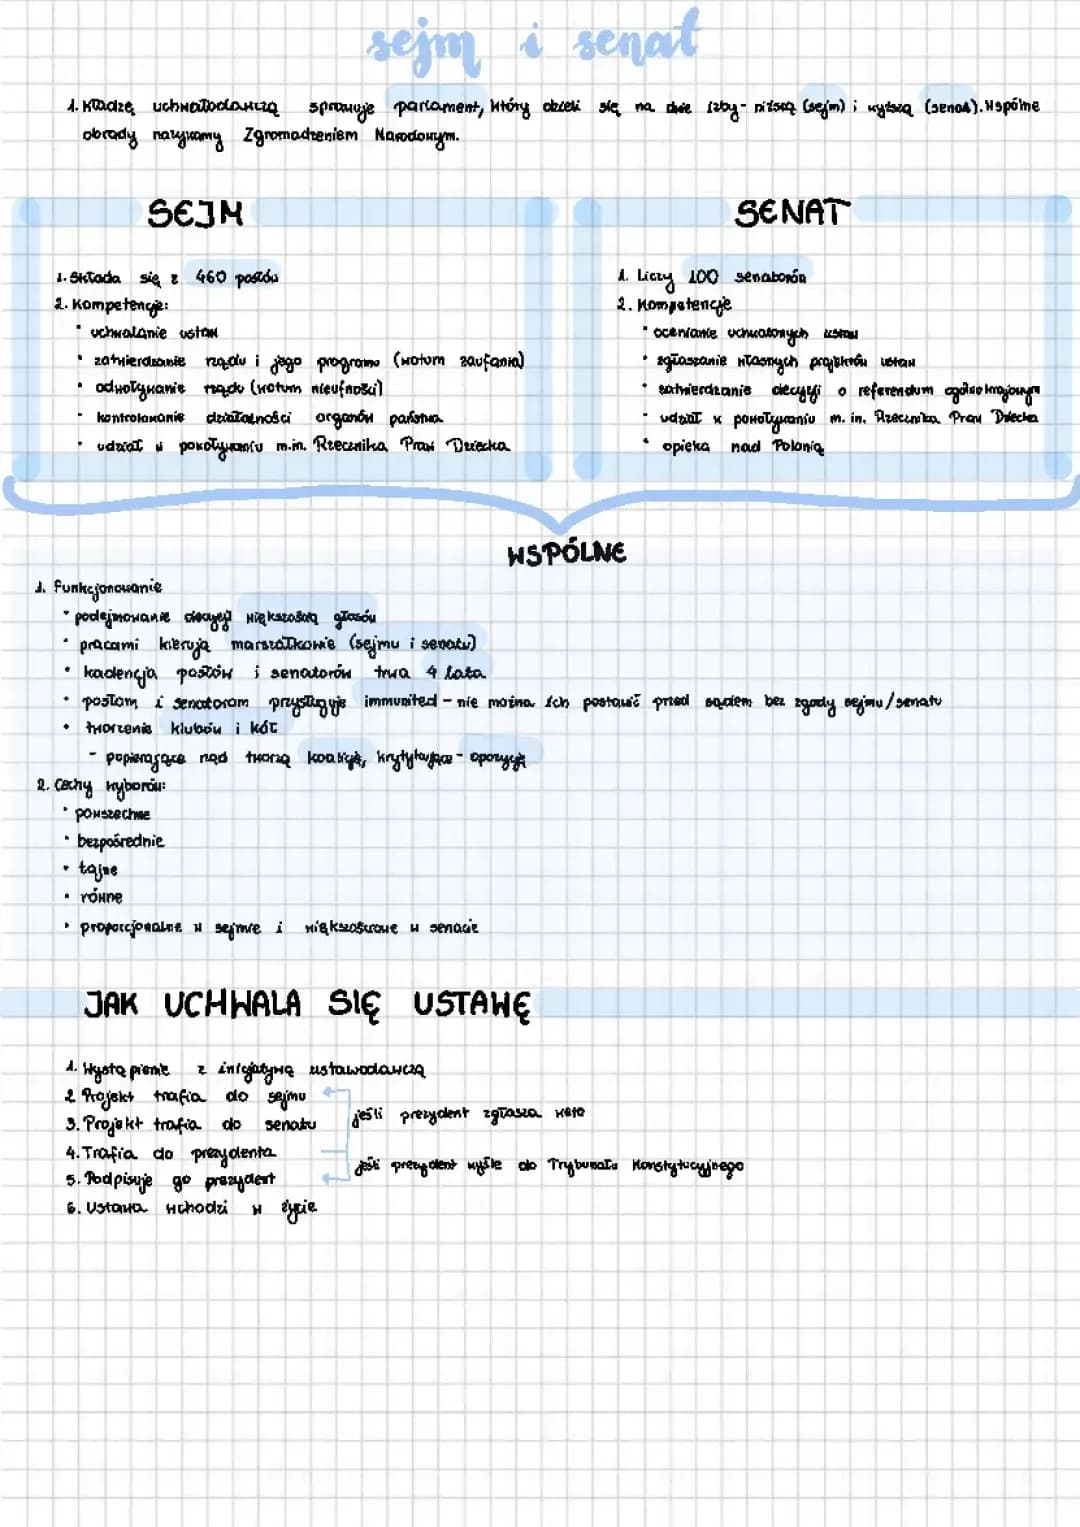 sejm i senat
1. Władzę uchwałodawczą sprawuje parlament, który dzieli się na dwie izby - niższą (sejm) i wyższą (senat). Wspólne
obrady nazywamy Zgromadzeniem Narodowym.
SEJM
1. Składa się z 460 posłów
2. Kompetencje:
• uchwalanie ustaw
• zatwierdzanie rządu i jego programu (wotum zaufania)
• odwoływanie rządu (wotum nieufności)
• kontrolowanie działalności organów państwa
• udział w powoływaniu m.in. Rzecznika Praw Dziecka
SENAT
1. Liczy 100 senatorów
2. Kompetencje
• ocenianie uchwalonych ustaw
• zgłaszanie własnych projektów ustaw
• zatwierdzanie decyzji o referendum ogólnokrajowym
• udział w powoływaniu m. in. Rzecznika Praw Dziecka
• opieka nad Polonią
WSPÓLNE
1. Funkcjonowanie
• podejmowanie decyzji większością głosów
• pracami kierują marszałkowie (sejmu i senatu)
• kadencja posłów i senatorów trwa 4 lata
• posłom i senatorom przysługuje immunited - nie można ich postawić przed sądem bez zgody sejmu/senatu
• tworzenie klubów i kół
- popierające rząd tworzą koalicję, krytykujące - opozycję
2. Cechy wyborów:
• powszechne
• bezpośrednie
• tajne
• równe
• proporcjonalne w sejmie i większościowe w senacie
JAK UCHWALA SIĘ USTAWĘ
1. Wystąpienie z inicjatywą ustawodawczą
2 Projekt trafia do sejmu
3. Projekt trafia do senatu
jeśli prezydent zgłasza weto
4. Trafia do prezydenta
jeśli prezydent wyśle do Trybunału Konstytucyjnego
5. Podpisuje go prezydent
6. Ustawa wchodzi w życie